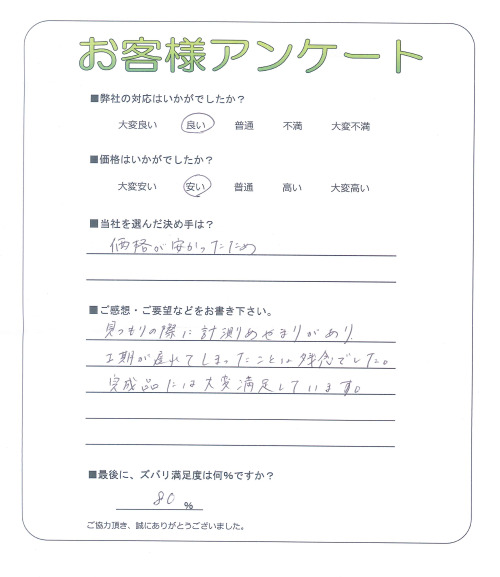 お客様アンケート
■弊社の対応はいかがでしたか？
大変良い 良い 普通 不満 大変不満
■価格はいかがでしたか？
大変安い 安い 普通 高い 大変高い
■当社を選んだ決め手は？
価格が安かったため
■ご感想・ご要望などをお書き下さい。
見つもりの際に計測りあやまりがあり
工期が遅れてしまったことは残念でした。
完成品には大変満足しています。
■最後に、ズバリ満足度は何%ですか？
80 %
ご協力頂き、誠にありがとうございました。